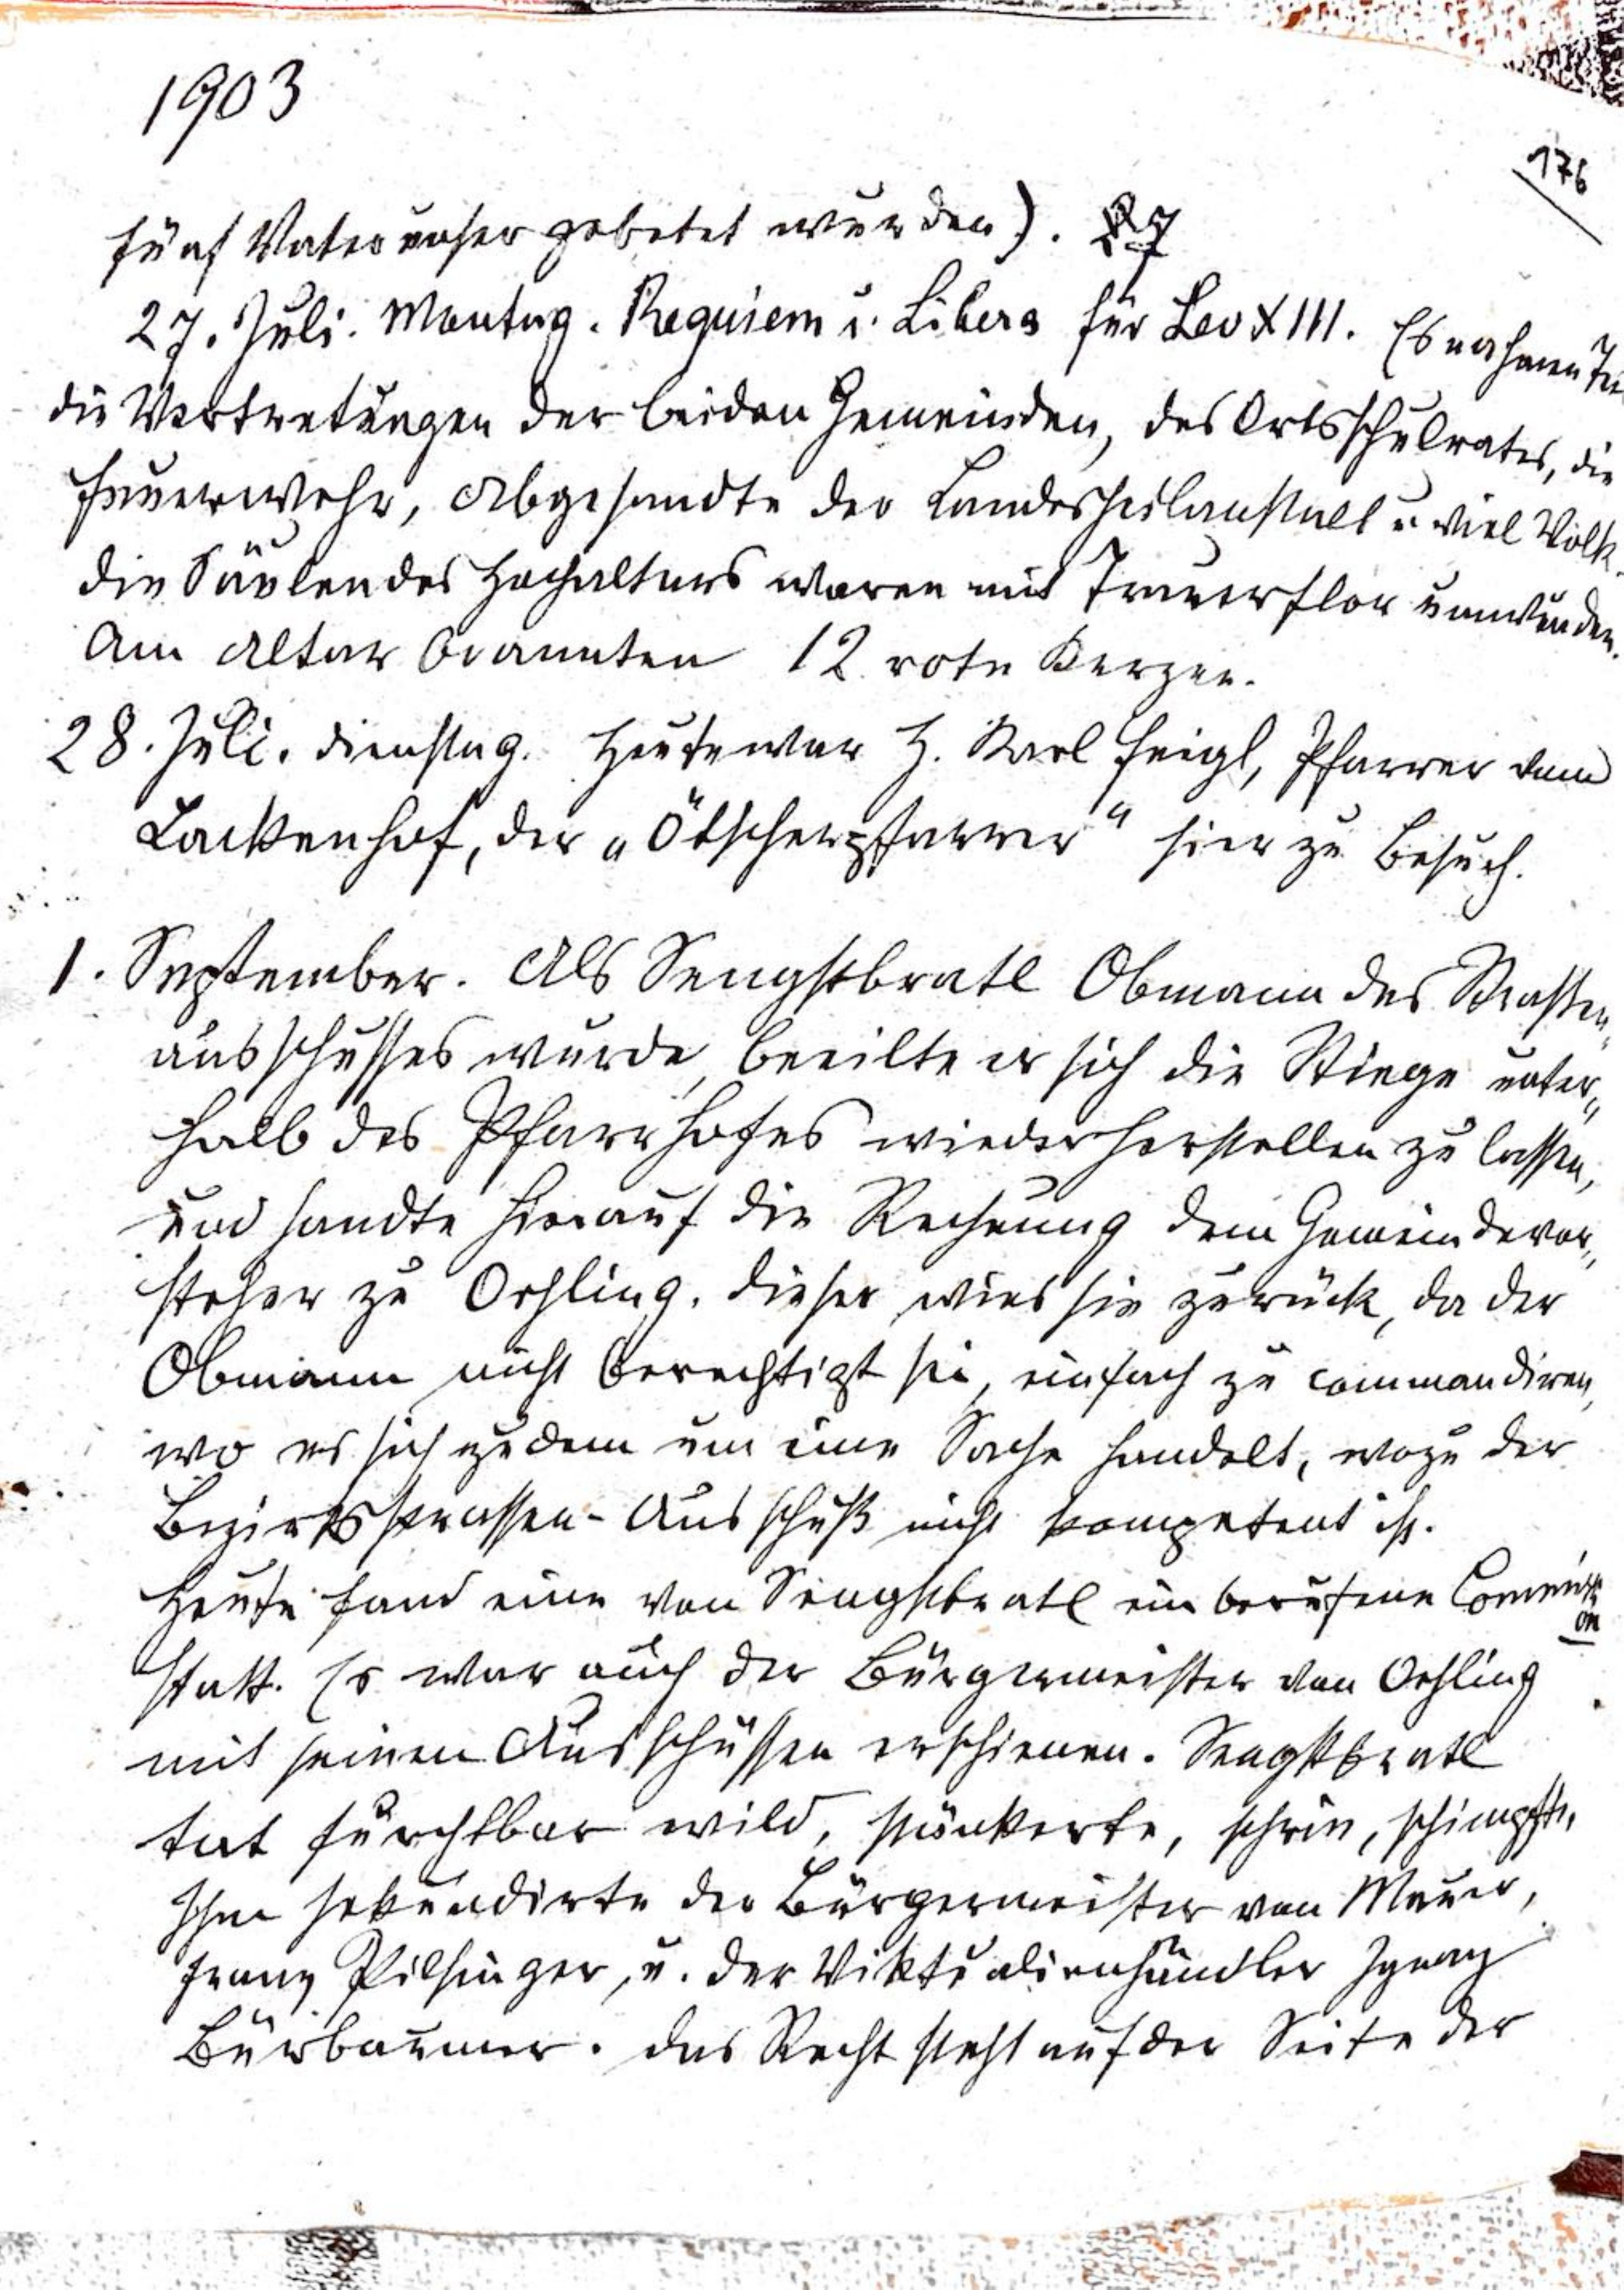 1903
176
fünf Vaterunser gebetet wurden). 27
27. Juli. Montag. Requiem u. Libera für Leo XIII. Es nahmen Teil
die Vertretungen der beiden Gemeinden, des Ortsschulrates, die
Feuerwehr, Abgesandte der Landesheilanstalt u. viel Volk.
Die Säulen des Hochaltars waren mit Trauerflor umwunden.
Am Altar brannten 12 rote Kerzen.
28. Juli. Dienstag. Heute war H. Karl Feigl, Pfarrer vom
Lackenhof, der „Ötscherpfarrer“ hier zu Besuch.
1. September. Als Sengstbratl Obmann des Strassen„
ausschusses wurde, beeilte er sich die Stiege unter„
halb des Pfarrhofes wiederherstellen zu lassen,
und sandte hierauf die Rechnung dem Gemeindevor„
steher zu Oehling. Dieser wies sie zurück, da der
Obmann nicht berechtigt sei, einfach zu commandiren,
wo es sich zudem um eine Sache handelt, wozu der
Bezirksstrassen-Ausschuß nicht kompetent ist.
Heute fand eine von Sengstbratl einberufene Commissi
on
statt. Es war auch der Bürgermeister von Oehling
mit seinen Ausschüssen erschienen. Sengstbratl
tat furchtbar wild, stänkerte, schrie, schimpfte,
Ihm sekundirte der Bürgermeister von Mauer,
Franz Pilsinger, u. der Viktualienhändler Ignaz
Bürbaumer. Das Recht steht auf der Seite der